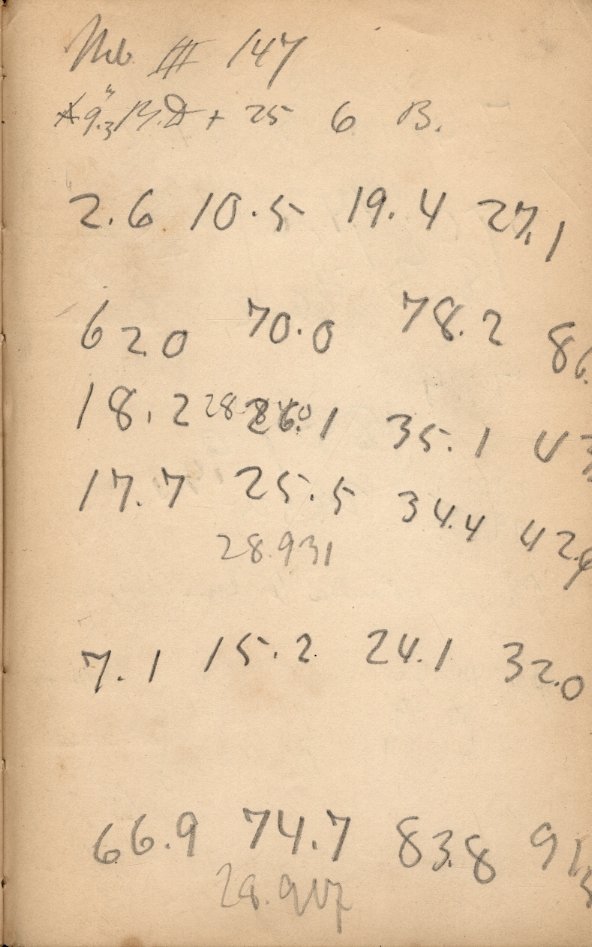 III 147
9.3 B.D + 25 6 B.
2.6 10.5 19.4 27.1
62.0 70.0 78.2 86.
18.2 26.1 35.1 43
17.7 25.5 34.4 42.6
28.931
7.1 15.2 24.1 32.0
66.9 74.7 83.8 91.
28.917